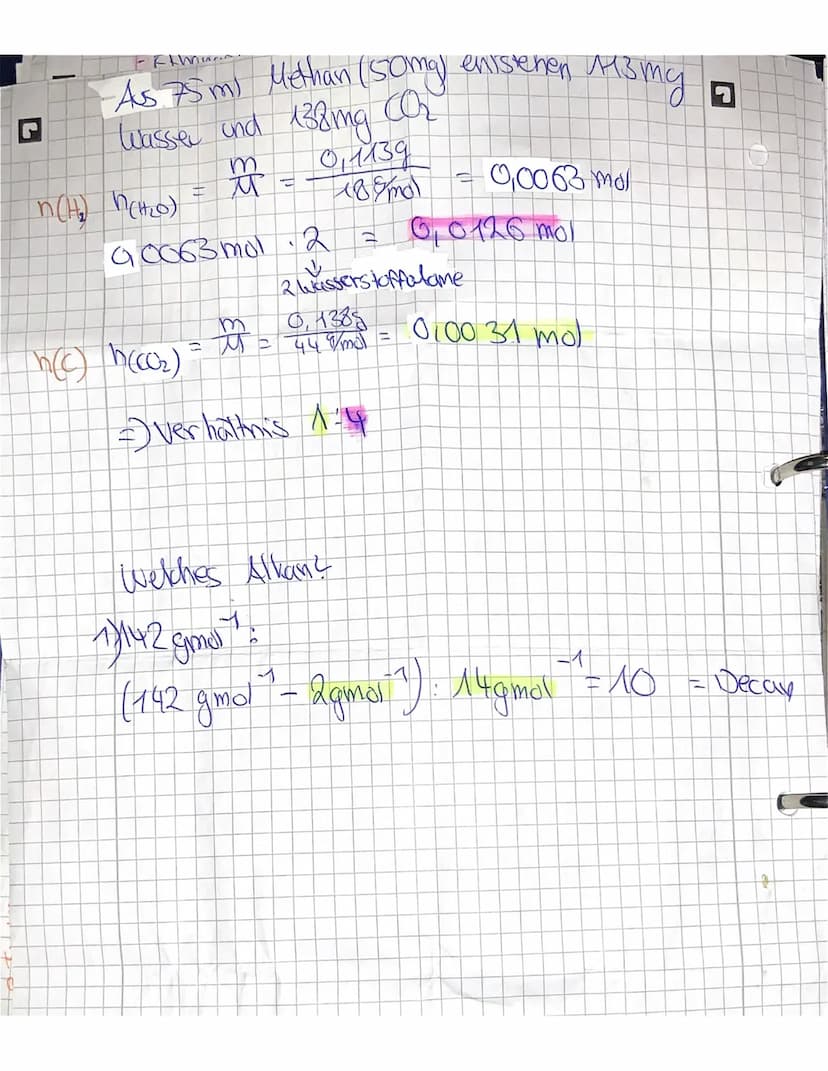 As 75ml Methan (50mg) entstehen 113mg
Wasser und 138mg CO₂
n(H₂) n(H₂O) = m/M = 0,113g/18g/mol = 0,0063 mol
0,0063mol · 2 = 0,0126 mol
↓
2 Wasserstoffatome
n(C) n(CO₂) = m/M = 0,138g/44g/mol = 0,0031 mol
=> Verhältnis 1:4
Welches Alkan?
1) 142 gmol⁻¹:
(142 gmol⁻¹ - 2gmol⁻¹) : 14gmol⁻¹ = 10 = Decan